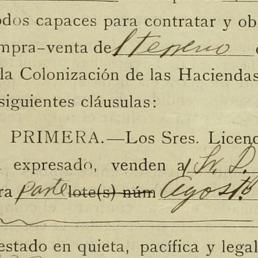 odos capaces para contratar y ob
mpra-venta de 1 terreno
la Colonización de las Haciendas
siguientes cláusulas:
PRIMERA.—Los Sres. Licenc
expresado, venden a/ Sr. D.
ra parte lote(s) núm Agosto
estado en quieta, pacífica y legal